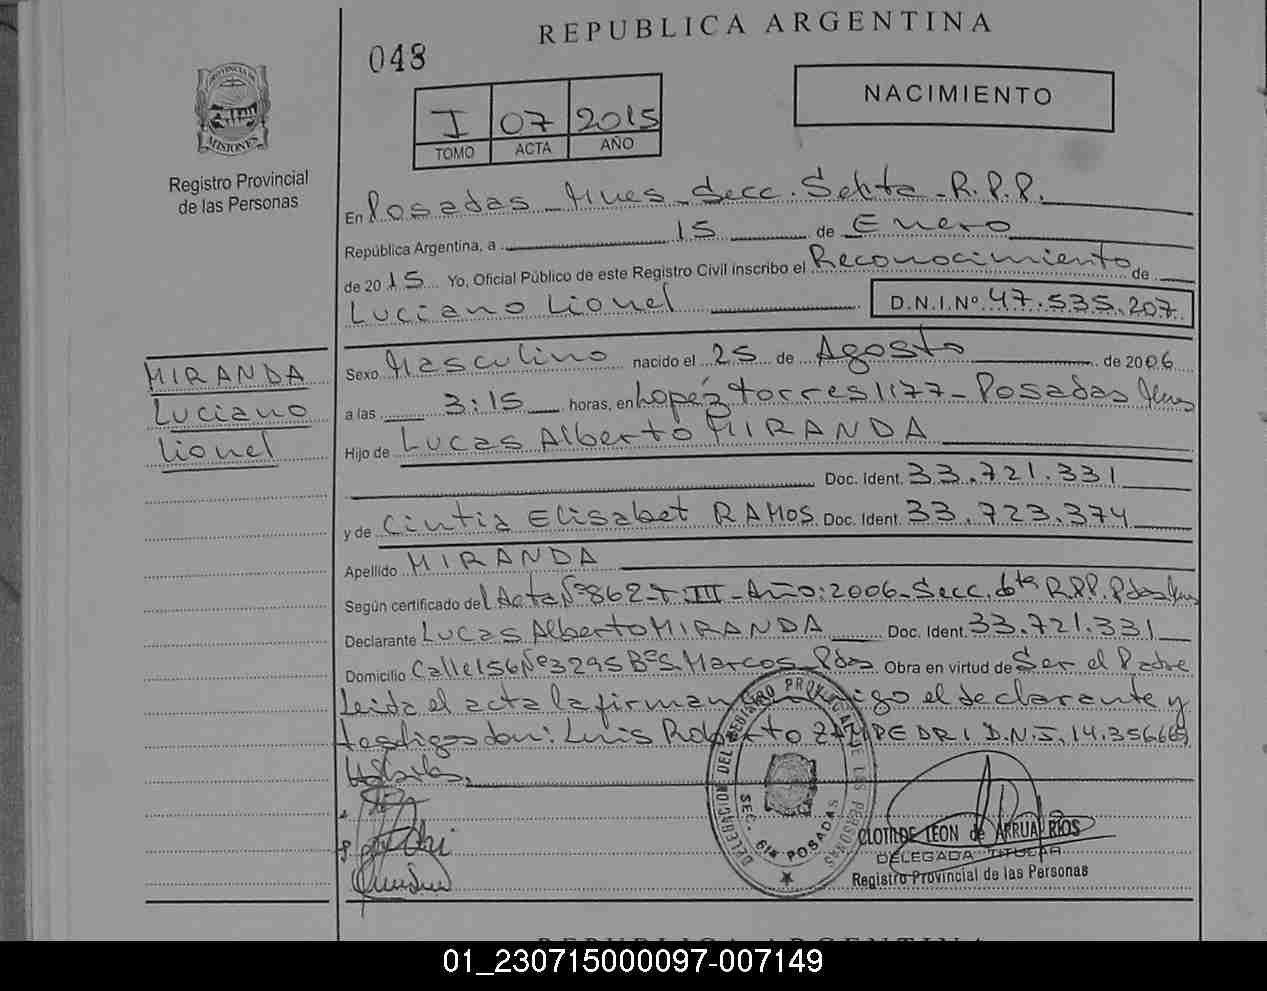 REPUBLICA ARGENTINA
048
NACIMIENTO
PROVINCIA DE
MISIONES
Registro Provincial
de las Personas
I 07 2015
TOMO ACTA AÑO
En Posadas Mnes Secc. Sexta - R.P.P.
República Argentina, a 15 de Enero
de 2015 Yo, Oficial Público de este Registro Civil inscribo el Reconocimiento de
Luciano Lionel D.N.I. Nº 47.535.207
MIRANDA
Luciano
Lionel
Sexo Masculino nacido el 25 de Agosto de 2006
a las 3:15 horas, en López torres 1177 - Posadas Mnes
Hijo de Lucas Alberto MIRANDA
Doc. Ident. 33.721.331
y de Cintia Elisabet RAMOS Doc. Ident. 33.723.374
Apellido MIRANDA
Según certificado del Acta Nº 862 - T: III - Año: 2006 - Secc. 6ta R.P.P. Pdas Mns
Declarante Lucas Alberto MIRANDA Doc. Ident. 33.721.331
Domicilio Calle 156 Nº 3295 Bº S. Marcos - Pdas Obra en virtud de Ser el Padre
Leida el acta la firman igo el declarante y
testigos don: Luis Roberto ZAMPEDRI D.N.I. 14.356.669
DELEGACION DEL REGISTRO PROVINCIAL DE LAS PERSONAS
SEC. 6ta POSADAS
CLOTILDE LEON de ARRUA RIOS
DELEGADA TITULAR
Registro Provincial de las Personas
REPUBLICA ARGENTINA
01_230715000097-007149